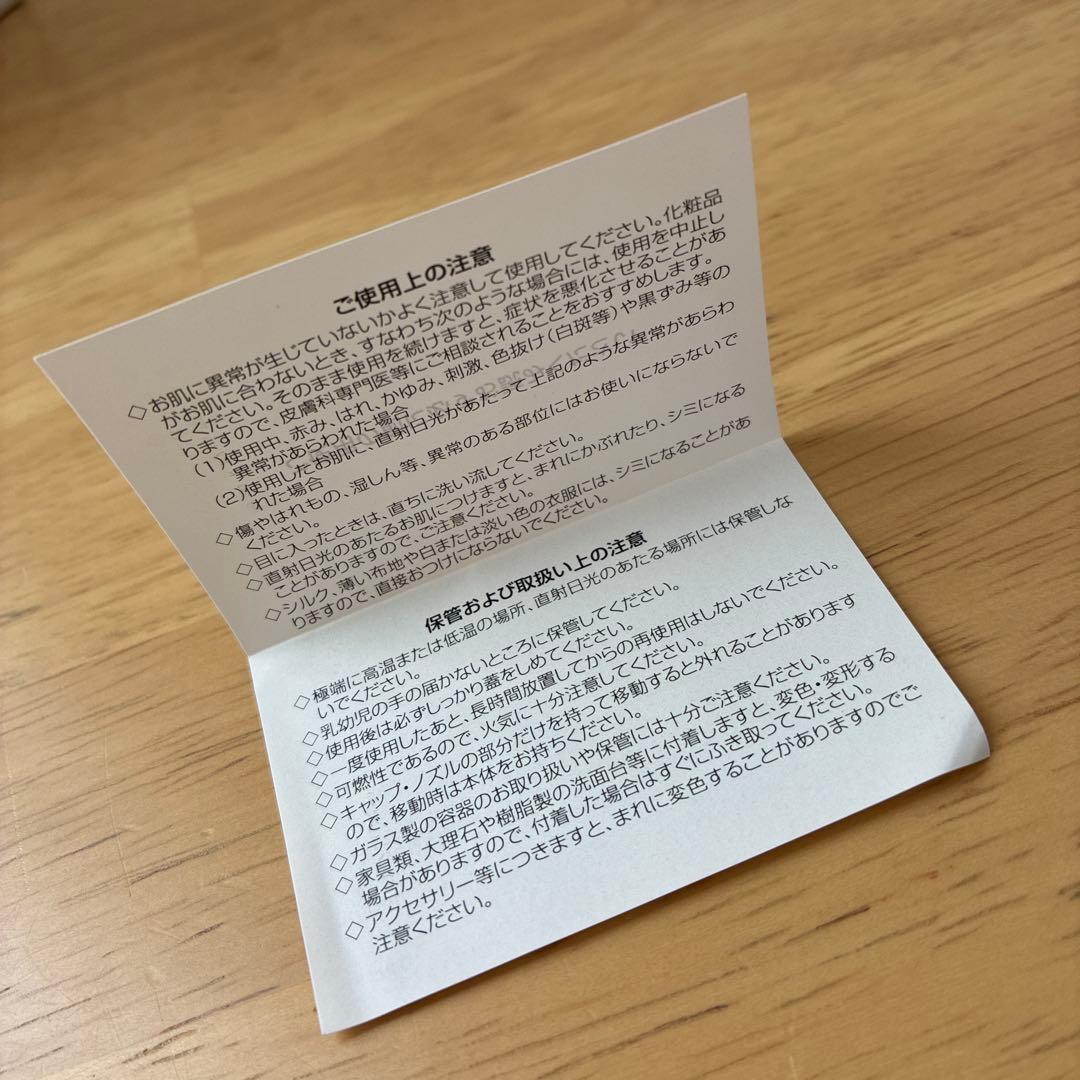 ご使用上の注意
◇お肌に異常が生じていないかよく注意して使用してください。化粧品
がお肌に合わないとき、すなわち次のような場合には、使用を中止し
てください。そのまま使用を続けますと、症状を悪化させることがあ
りますので、皮膚科専門医等にご相談されることをおすすめします。
(1)使用中、赤み、はれ、かゆみ、刺激、色抜け(白斑等)や黒ずみ等の
異常があらわれた場合
(2)使用したお肌に、直射日光があたって上記のような異常があらわ
れた場合
◇傷やはれもの、湿しん等、異常のある部位にはお使いにならないで
ください。
◇目に入ったときは、直ちに洗い流してください。
◇直射日光のあたるお肌につけますと、まれにかぶれたり、シミになる
ことがありますので、ご注意ください。
◇シルク、薄い布地や白または淡い色の衣服には、シミになることがあ
りますので、直接おつけにならないでください。
保管および取扱い上の注意
◇極端に高温または低温の場所、直射日光のあたる場所には保管しな
いでください。
◇乳幼児の手の届かないところに保管してください。
◇使用後は必ずしっかり蓋をしめてください。
◇一度使用したあと、長時間放置してからの再使用はしないでください。
◇可燃性であるので、火気に十分注意してください。
◇キャップ・ノズルの部分だけを持って移動すると外れることがあります
ので、移動時は本体をお持ちください。
◇ガラス製の容器のお取り扱いや保管には十分ご注意ください。
◇家具類、大理石や樹脂製の洗面台等に付着しますと、変色・変形する
場合がありますので、付着した場合はすぐにふき取ってください。
◇アクセサリー等につきますと、まれに変色することがありますのでご
注意ください。